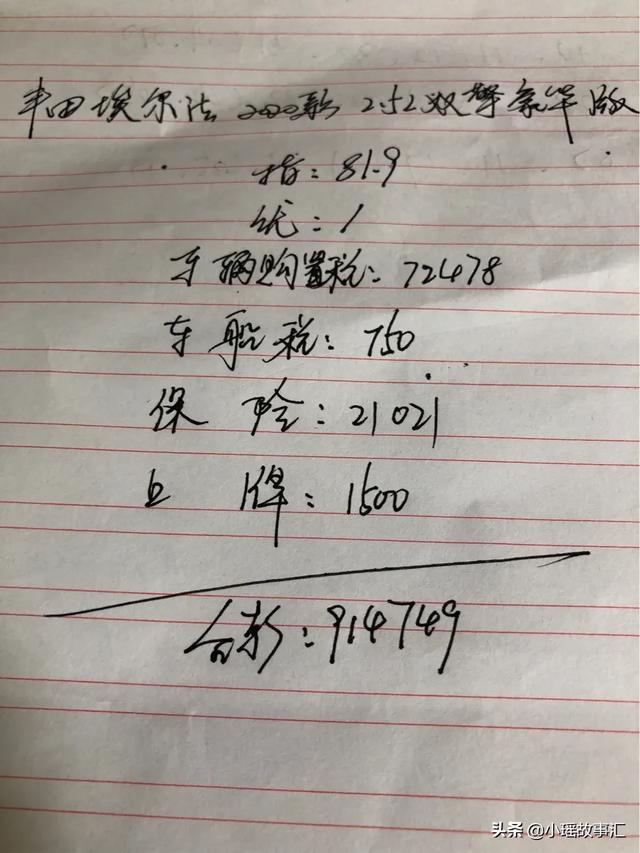 丰田埃尔法 2020款 2.5L双擎豪华版
指: 81.9
优: 1
车辆购置税: 72478
车船税: 750
保 险: 21021
上 牌: 1500
合款: 914749
头条 @小瑶故事汇